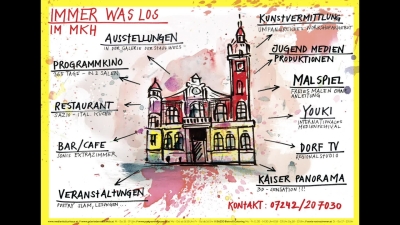 IMMER WAS LOS
IM MKH
AUSSTELLUNGEN
IN DER GALERIE DER STADT WELS
PROGRAMMKINO
365 TAGE - OLS SALEN
RESTAURANT
ITAL. KÜCHE
BAR/CAFE
EXTRAZIMMER
VERANSTALTUNGEN
POETRY SLAM, LESUNGEN...
KUNSTVERMITTLUNG
JUGEND MEDIEN
PRODUKTIONEN
MALSPIEL
FREIES MALEN OHNE
ANLEITUNG
YOUKI
INTERNATIONALES
MEDIENFESTIVAL
DORF TV
REGIONALSTUDIO
KAISER PANORAMA
3D-SENSATION!!!
KONTAKT: 07242/207030